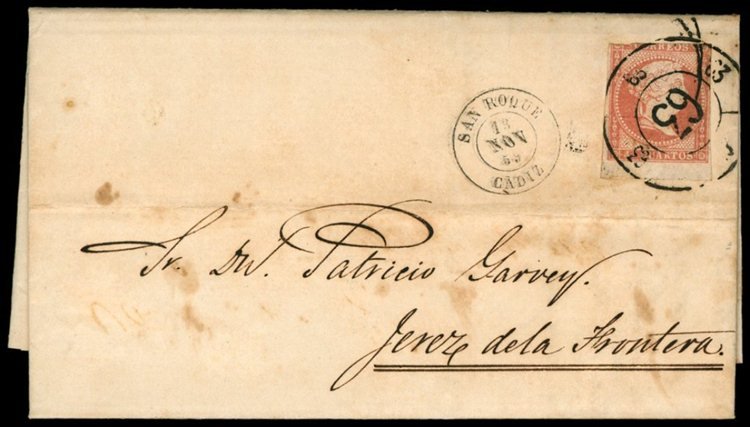 CORREOS
63
63
63
63
CUARTOS
SAN ROQUE
13
NOV
59
CADIZ
Sr. Dn. Patricio Garvey.
Jerez dela Frontera.